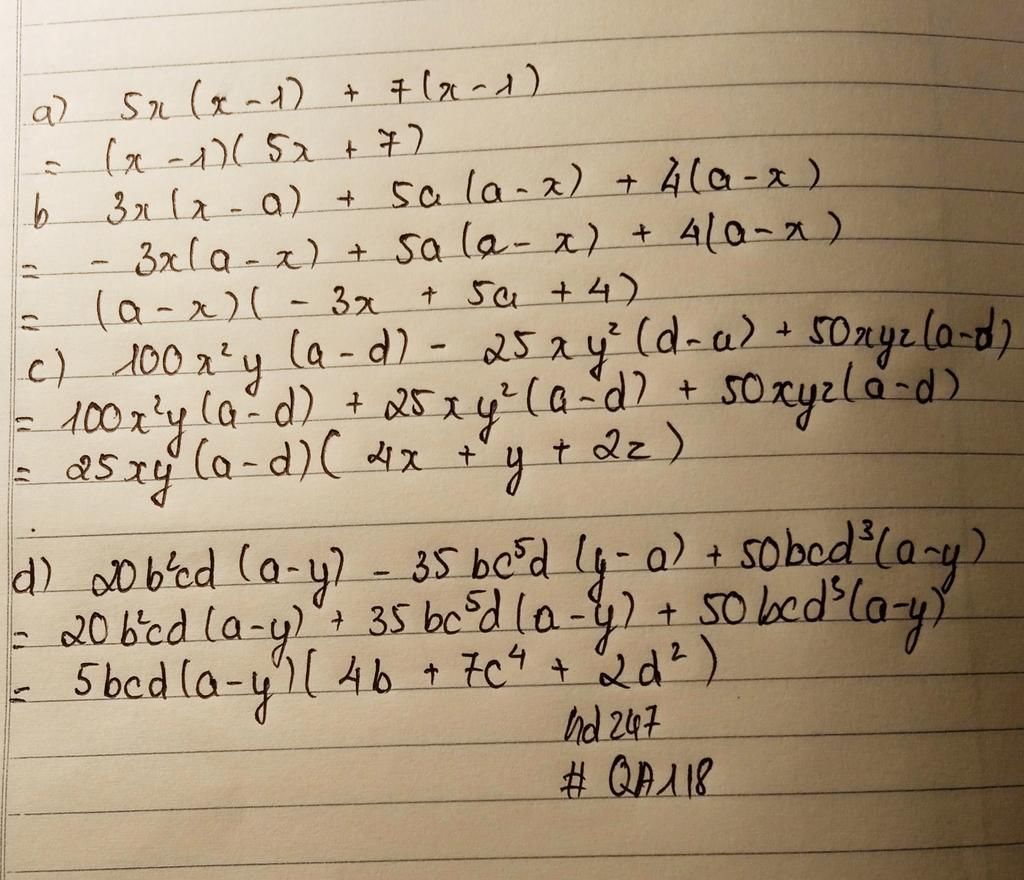 a) 5x (x - 1) + 7(x - 1)
= (x - 1)( 5x + 7)
b 3x(x - a) + 5a (a - x) + 4(a - x)
= - 3x(a - x) + 5a (a - x) + 4(a - x)
= (a - x)( - 3x + 5a + 4)
c) 100x²y (a - d) - 25xy² (d - a) + 50xyz(a-d)
= 100x²y (a-d) + 25xy² (a-d) + 50xyz(a-d)
= 25xy (a-d)( 4x + y + 2z )
d) 20b²cd (a-y) - 35bc⁵d (y - a) + 50bcd³(a-y)
= 20b²cd (a-y) + 35bc⁵d (a-y) + 50bcd³(a-y)
= 5bcd(a-y)( 4b + 7c⁴ + 2d² )
hd247
# QA118